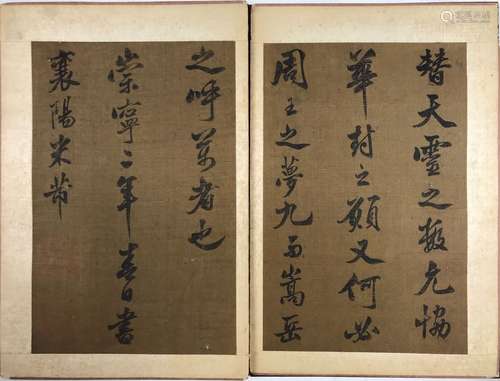 替天靈之數允協
華封之願又何必
周王之夢九而嵩岳
之呼萬者也
崇寧二年春日書
襄陽米芾